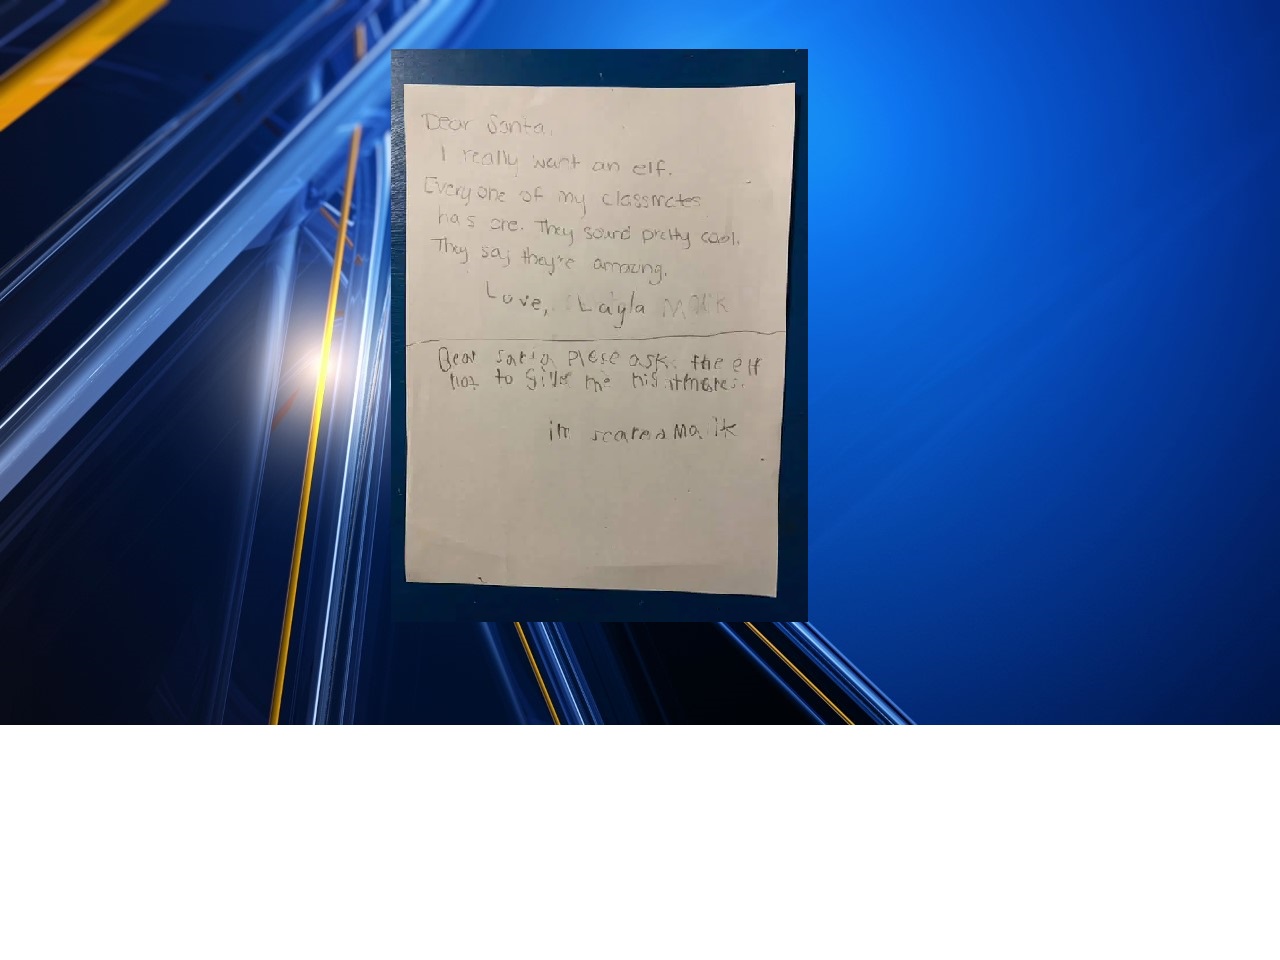 Dear Santa,
I really want an elf.
Everyone of my classmates
has one. They sound pretty cool.
They say they're amazing.
Love, Layla Malik
Dear santa plese ask the elf
not to give me nigtmares.
im scared Malik